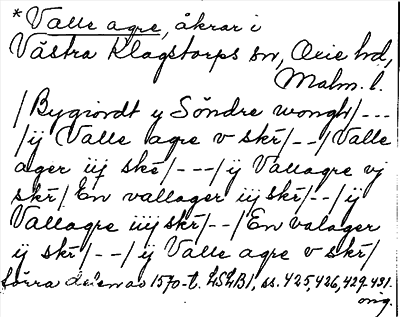 * Valle agre, åkrar i
Västra Klagstorps sn, Oxie hd,
Malm. l.
/Bygiordt y Söndre wongh/---
/ij Valle agre v skr/--/Valle
ager iij ske/---/ij Vallagre vj
skr/. En vallager iij skr/--/ij
Vallagre iiij skr/--/En valager
ij skr/--/ij Valle agre v skr/
Förra delen av 1570-t. LSLB1, ss. 425, 426, 429-431.
orig.